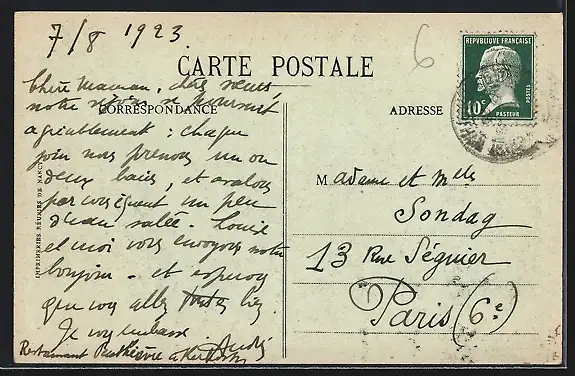 7/8 1923.
6
CARTE POSTALE
REPUBLIQUE FRANÇAISE
10c
POSTES
PASTEUR
CORRESPONDANCE
ADRESSE
IMPRIMERIES RÉUNIES DE NANCY
Chère Maman,
notre séjour se poursuit
agréablement : chaque
jour nous prenons un ou
deux bains, et avalons
par conséquent un peu
d'eau salée. Louise
et moi vous envoyons notre
bonjour. et espérons
que vous allez toutes bien.
Je vous embrasse
André
Restaurant
Madame et Melle
Sondag
13 Rue Séguier
Paris (6e)